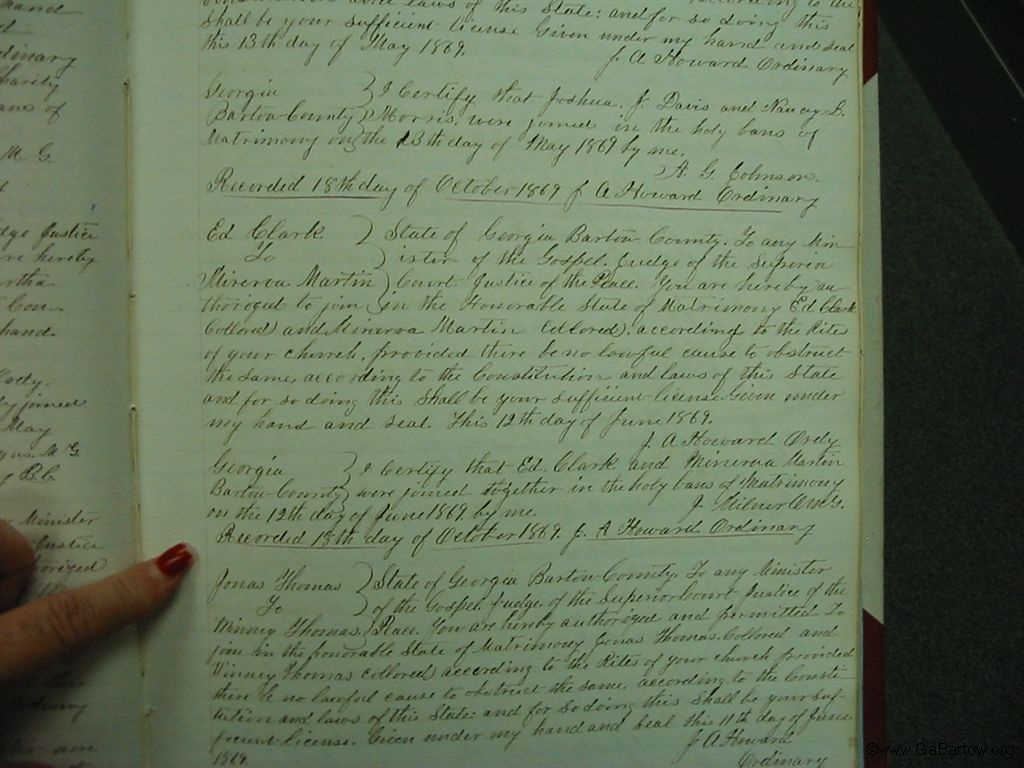 hand
dinary
charity
ans of
M. G.
dge Justice
re hereby
rtha
Con-
hand.
joined
May
M G
Minister
Justice
horized
Constitution and laws of this State: and for so doing this
Shall be your Sufficient License Given under my hand and Seal
this 13th day of May 1869.
J. A Howard Ordinary
Georgia } I Certify that Joshua. J. Davis and Nancy L.
Bartow County } Morris, were joined in the holy bans of
Matrimony on the 13th day of May 1869 by me.
A. G. Johnson.
Recorded 18th day of October 1869 J A Howard Ordinary
Ed Clark } State of Georgia Bartow County. To any Min
To } ister of the Gospel. Judge of the Superior
Minerva Martin } Court. Justice of the Peace. You are hereby au
thorized to join in the Honorable State of Matrimony Ed Clark
Collored) and Minerva Martin Collored). according to the Rites
of your church, provided there be no lawful cause to obstruct
the same, according to the Constitution and laws of this State
and for so doing this Shall be your Sufficient License Given under
my hand and Seal. This 12th day of June 1869.
J. A Howard Ordy
Georgia } I Certify that Ed. Clark and Minerva Martin
Bartow County } were joined together in the holy bans of Matrimony
on the 12th day of June 1869 by me. J. Milner OMG.
Recorded 18th day of October 1869. J. A Howard Ordinary
Jonas Thomas } State of Georgia Bartow County. To any Minister
To } of the Gospel, Judge of the Superior Court Justice of the
Winney Thomas } Peace. You are hereby authorized and permitted To
join in the honorable State of Matrimony Jonas Thomas Collored and
Winney Thomas collored) according to the Rites of your church provided
there be no lawful cause to obstruct the same. according to the Consti
tution and laws of this State: and for so doing this Shall be your Suf-
ficient License. Given under my hand and Seal this 11th day of June
1869. J A Howard
Ordinary
©www.GaBartow.org